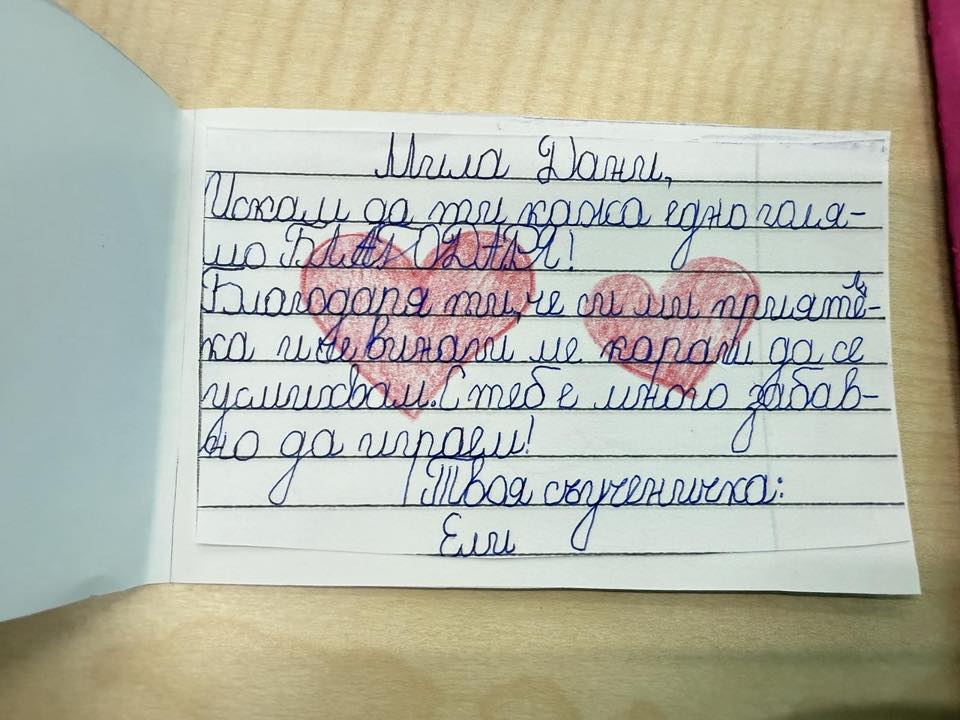 Мила Дани,
Искам да ти кажа едно голя-
мо БЛАГОДАРЯ!
Благодаря ти, че си ми приятел-
ка и че винаги ме караш да се
усмихвам. С тебе много забав-
но да играем!
Твоя съученичка:
Ели